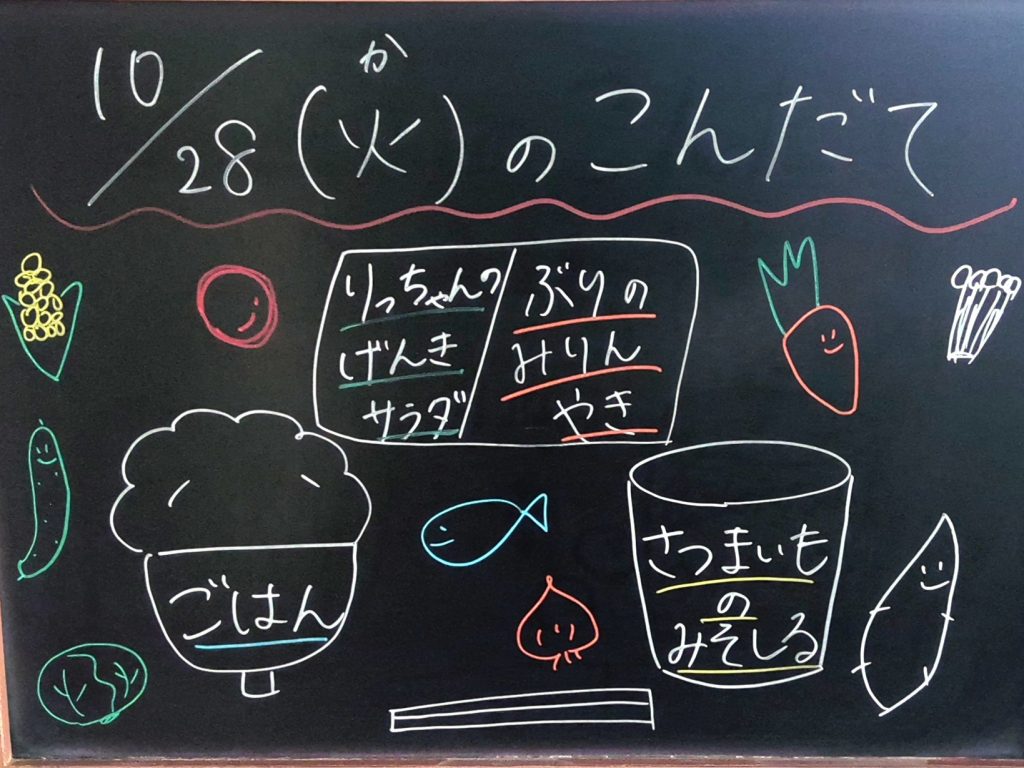 10/28(火)のこんだて
か
りっちゃんの
げんき
サラダ
ぶりの
みりん
やき
ごはん
さつまいも
の
みそしる